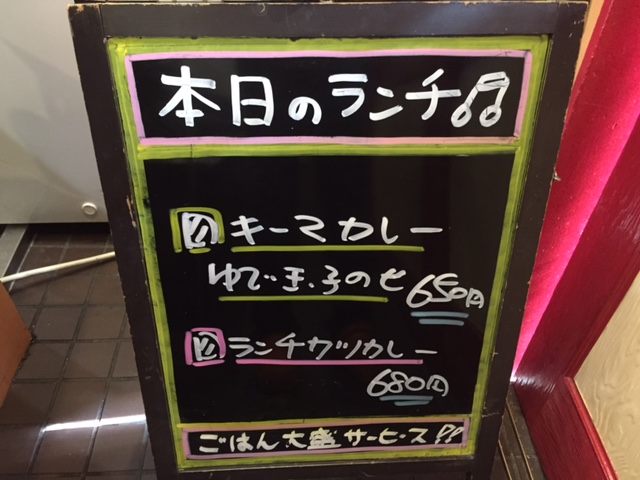 本日のランチ♫
キーマカレー
ゆで玉子のせ 650円
ランチカツカレー
680円
ごはん大盛サービス!!